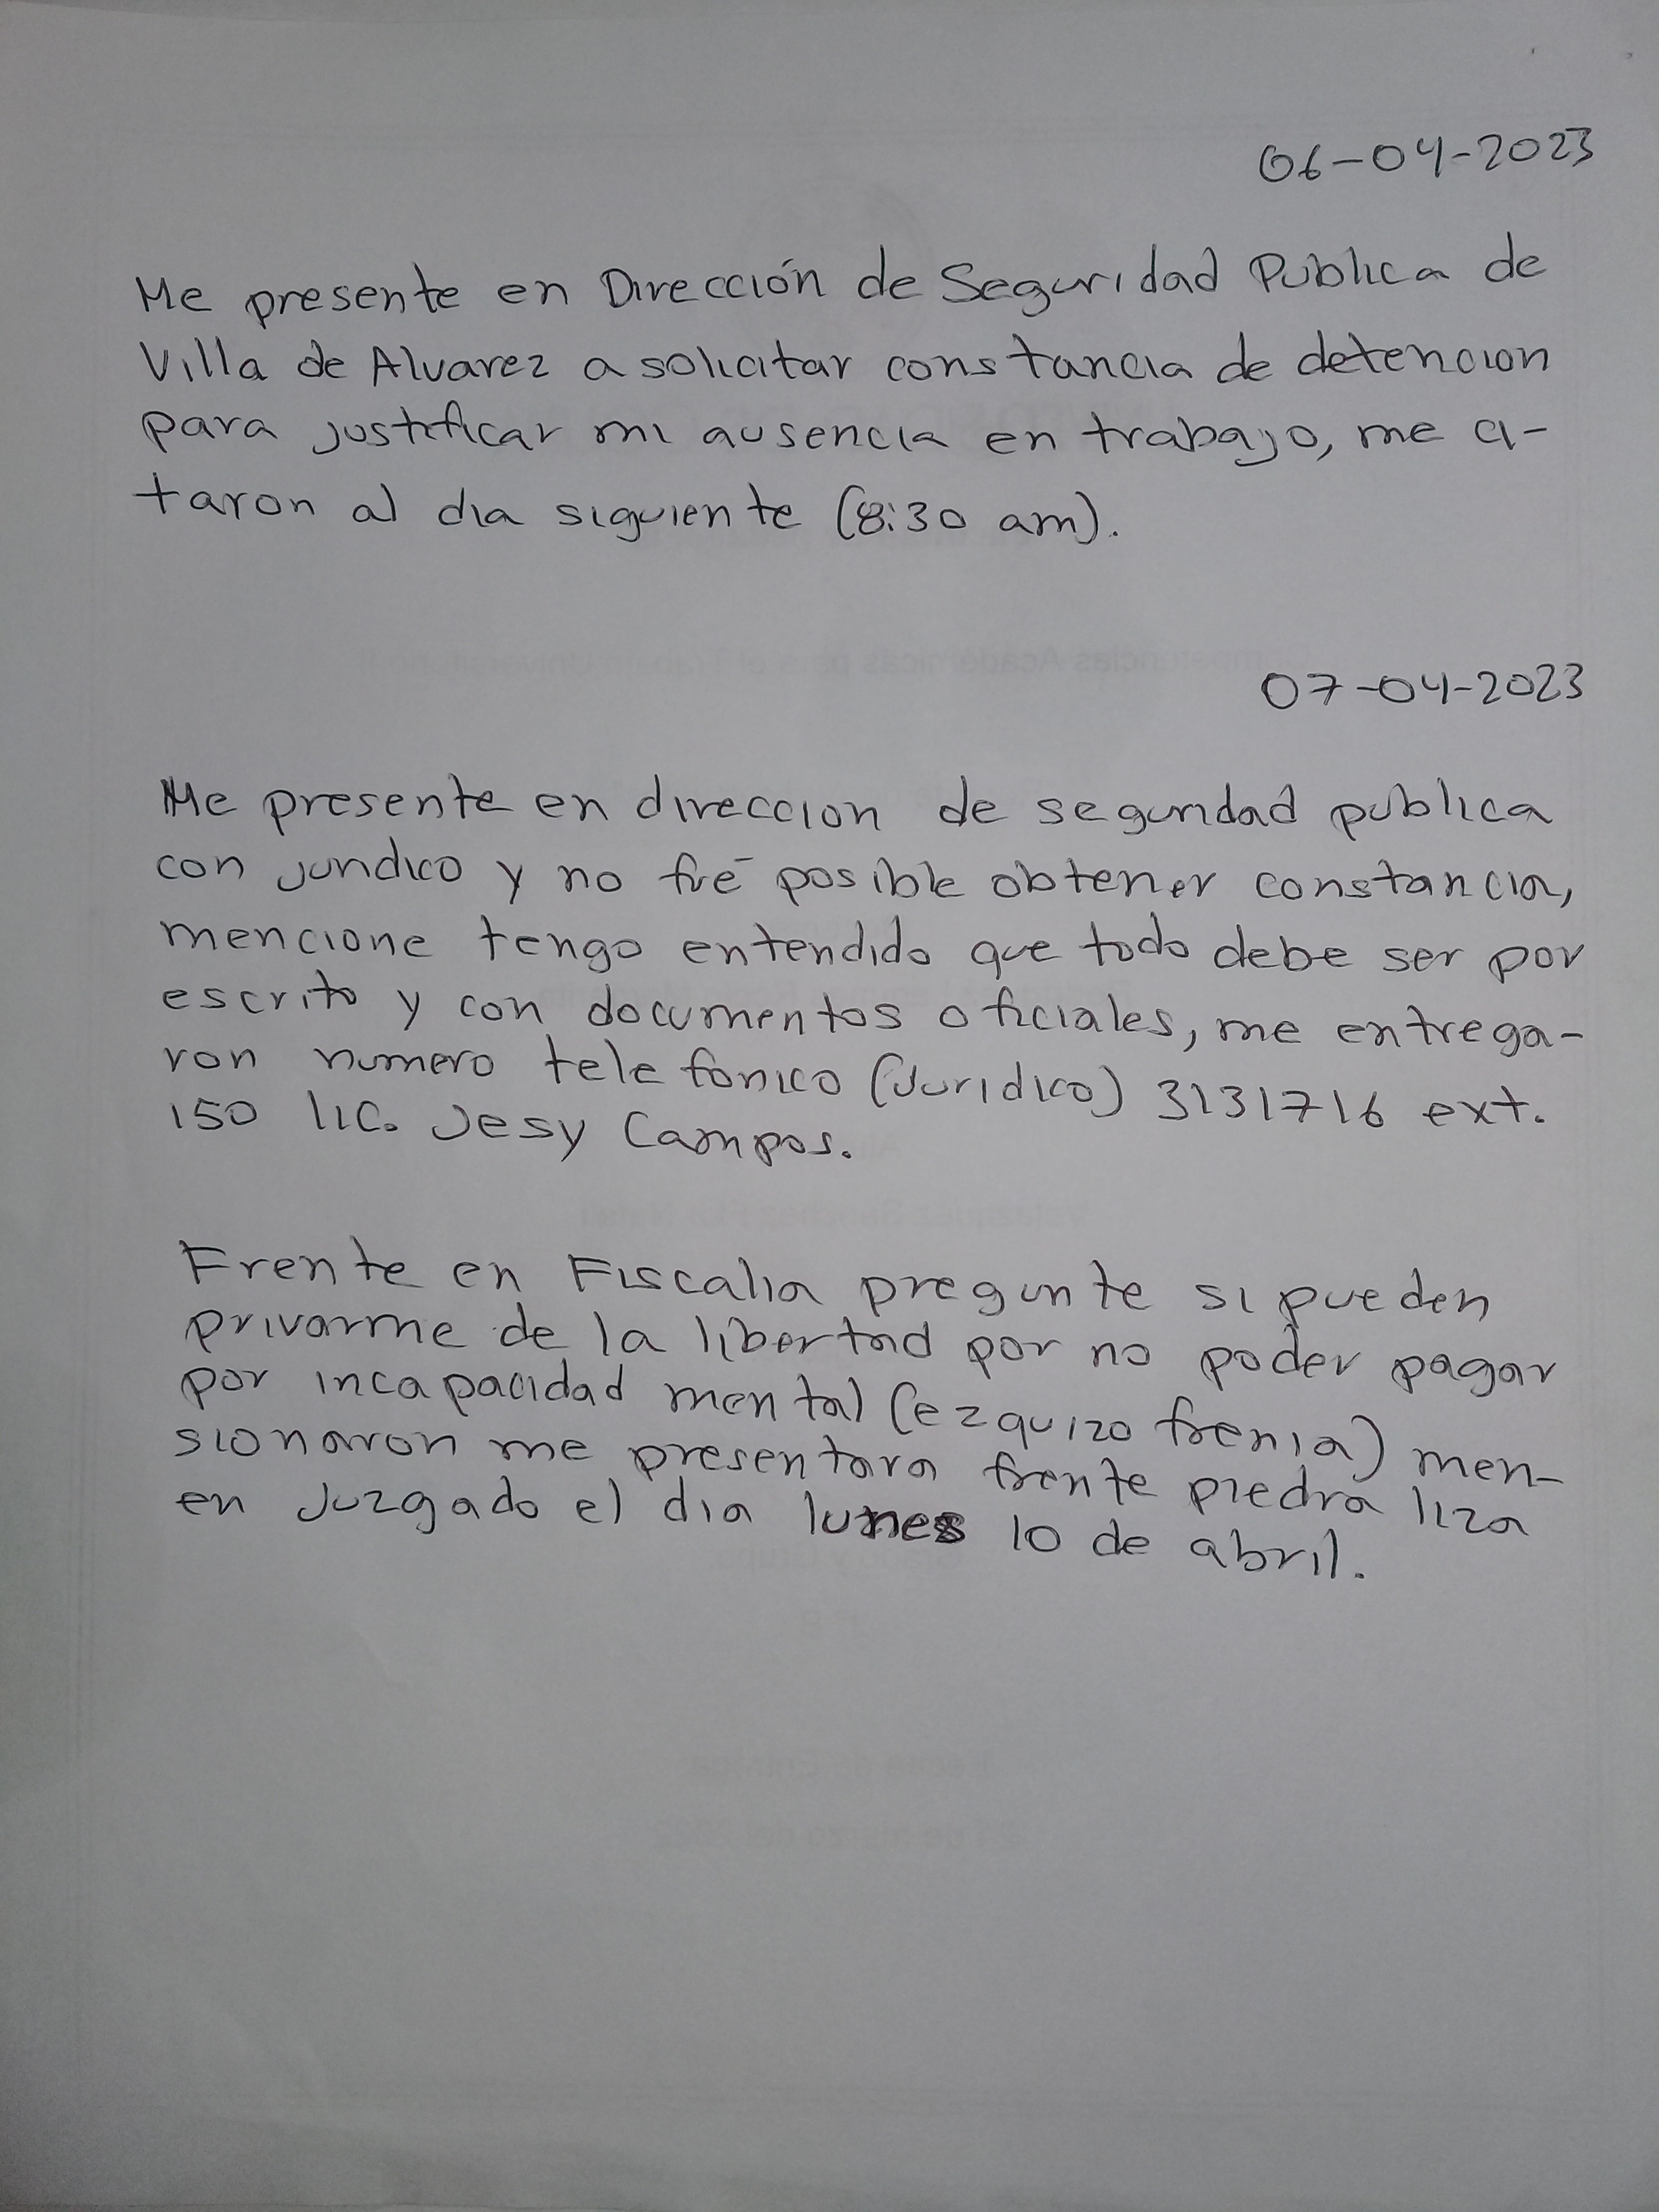 06-04-2023
Me presente en Dirección de Seguridad Publica de
Villa de Alvarez a solicitar constancia de detencion
para justificar mi ausencia en trabajo, me ci-
taron al dia siguiente (8:30 am).
07-04-2023
Me presente en direccion de seguridad publica
con juridico y no fué posible obtener constancia,
mencione tengo entendido que todo debe ser por
escrito y con documentos oficiales, me entrega-
ron numero telefonico (Juridico) 3131716 ext.
150 lic. Jesy Campos.
Frente en Fiscalia pregunte si pueden
privarme de la libertad por no poder pagar
por incapacidad mental (ezquizofrenia) men-
sionaron me presentara frente piedra liza
en Juzgado el dia lunes 10 de abril.